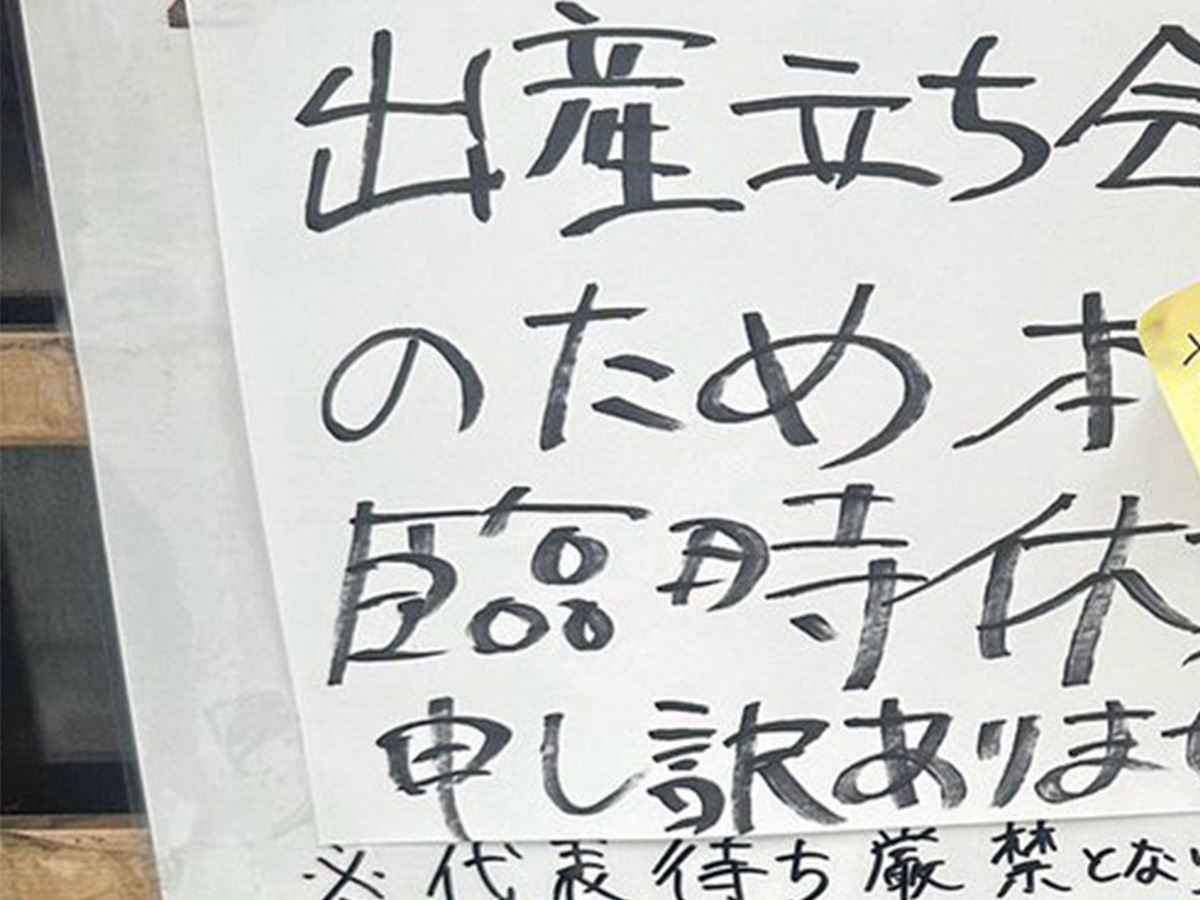 出産立ち会
のため 本
臨時休
申し訳ありませ
※代表待ち厳禁とな